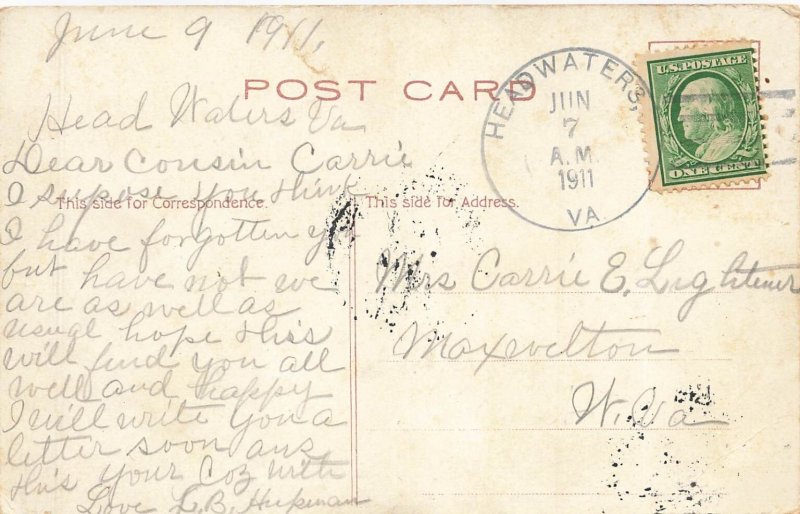 June 9 1911,
POST CARD
Head Waters Va
Dear Cousin Carrie
I supose you think
This side for Correspondence.
I have forgotten you
but have not we
are as well as
usual hope this
will find you all
well and happy
I will write you a
letter soon ans
this your Coz with
Love L.B.
HEADWATERS,
JUN
7
A.M.
1911
VA.
U.S. POSTAGE
ONE CENT
This side for Address.
Mrs Carrie E. Lightener
Maxwelton
W. Va